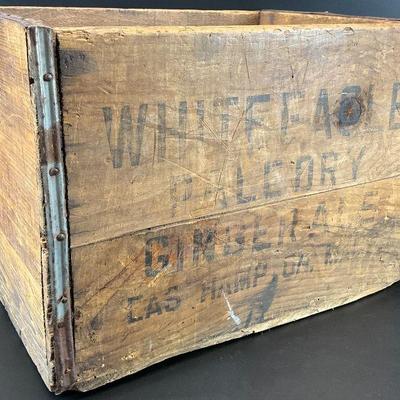 WHITE EAGLE
PALE DRY
GINGER ALE
EAS HAMP